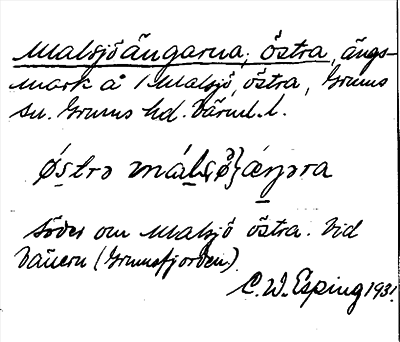 Malsjöängarna, östra, ängs-
mark å 1 Malsjö, östra, Grums
sn. Grums hd. Värml. l.
östrə málsö}äŋəra
Söder om Malsjö östra. Vid
Vänern (Grumsfjorden).
C. W. Esping 1931.